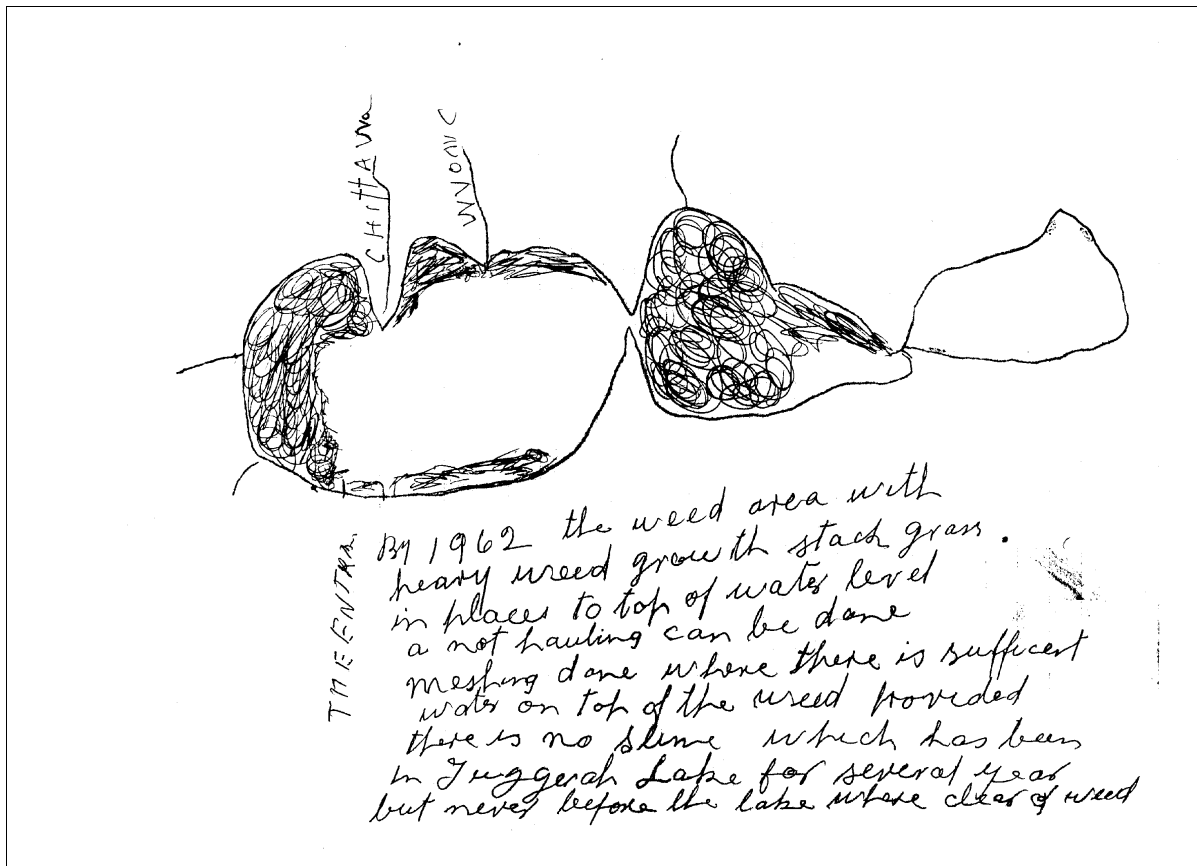 CHITTAWA
WYONG
THE ENTRA.
By 1962 the weed area with
heavy weed growth stach grass.
in places to top of water level
a not hauling can be done
meshing done where there is sufficent
water on top of the weed provided
there is no slime which has been
in Tuggerah Lake for several year
but never before the lake where clear of weed